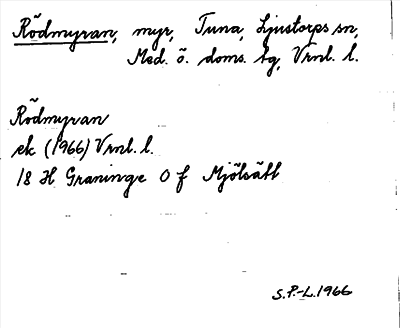 Rödmyran, myr, Tuna, Ljustorps sn,
Med. ö. doms. tg, Vrnl. l.
Rödmyran
ek (1966) Vrnl. l.
18 H Graninge 0 f Mjölsätt
S.P.-L. 1966